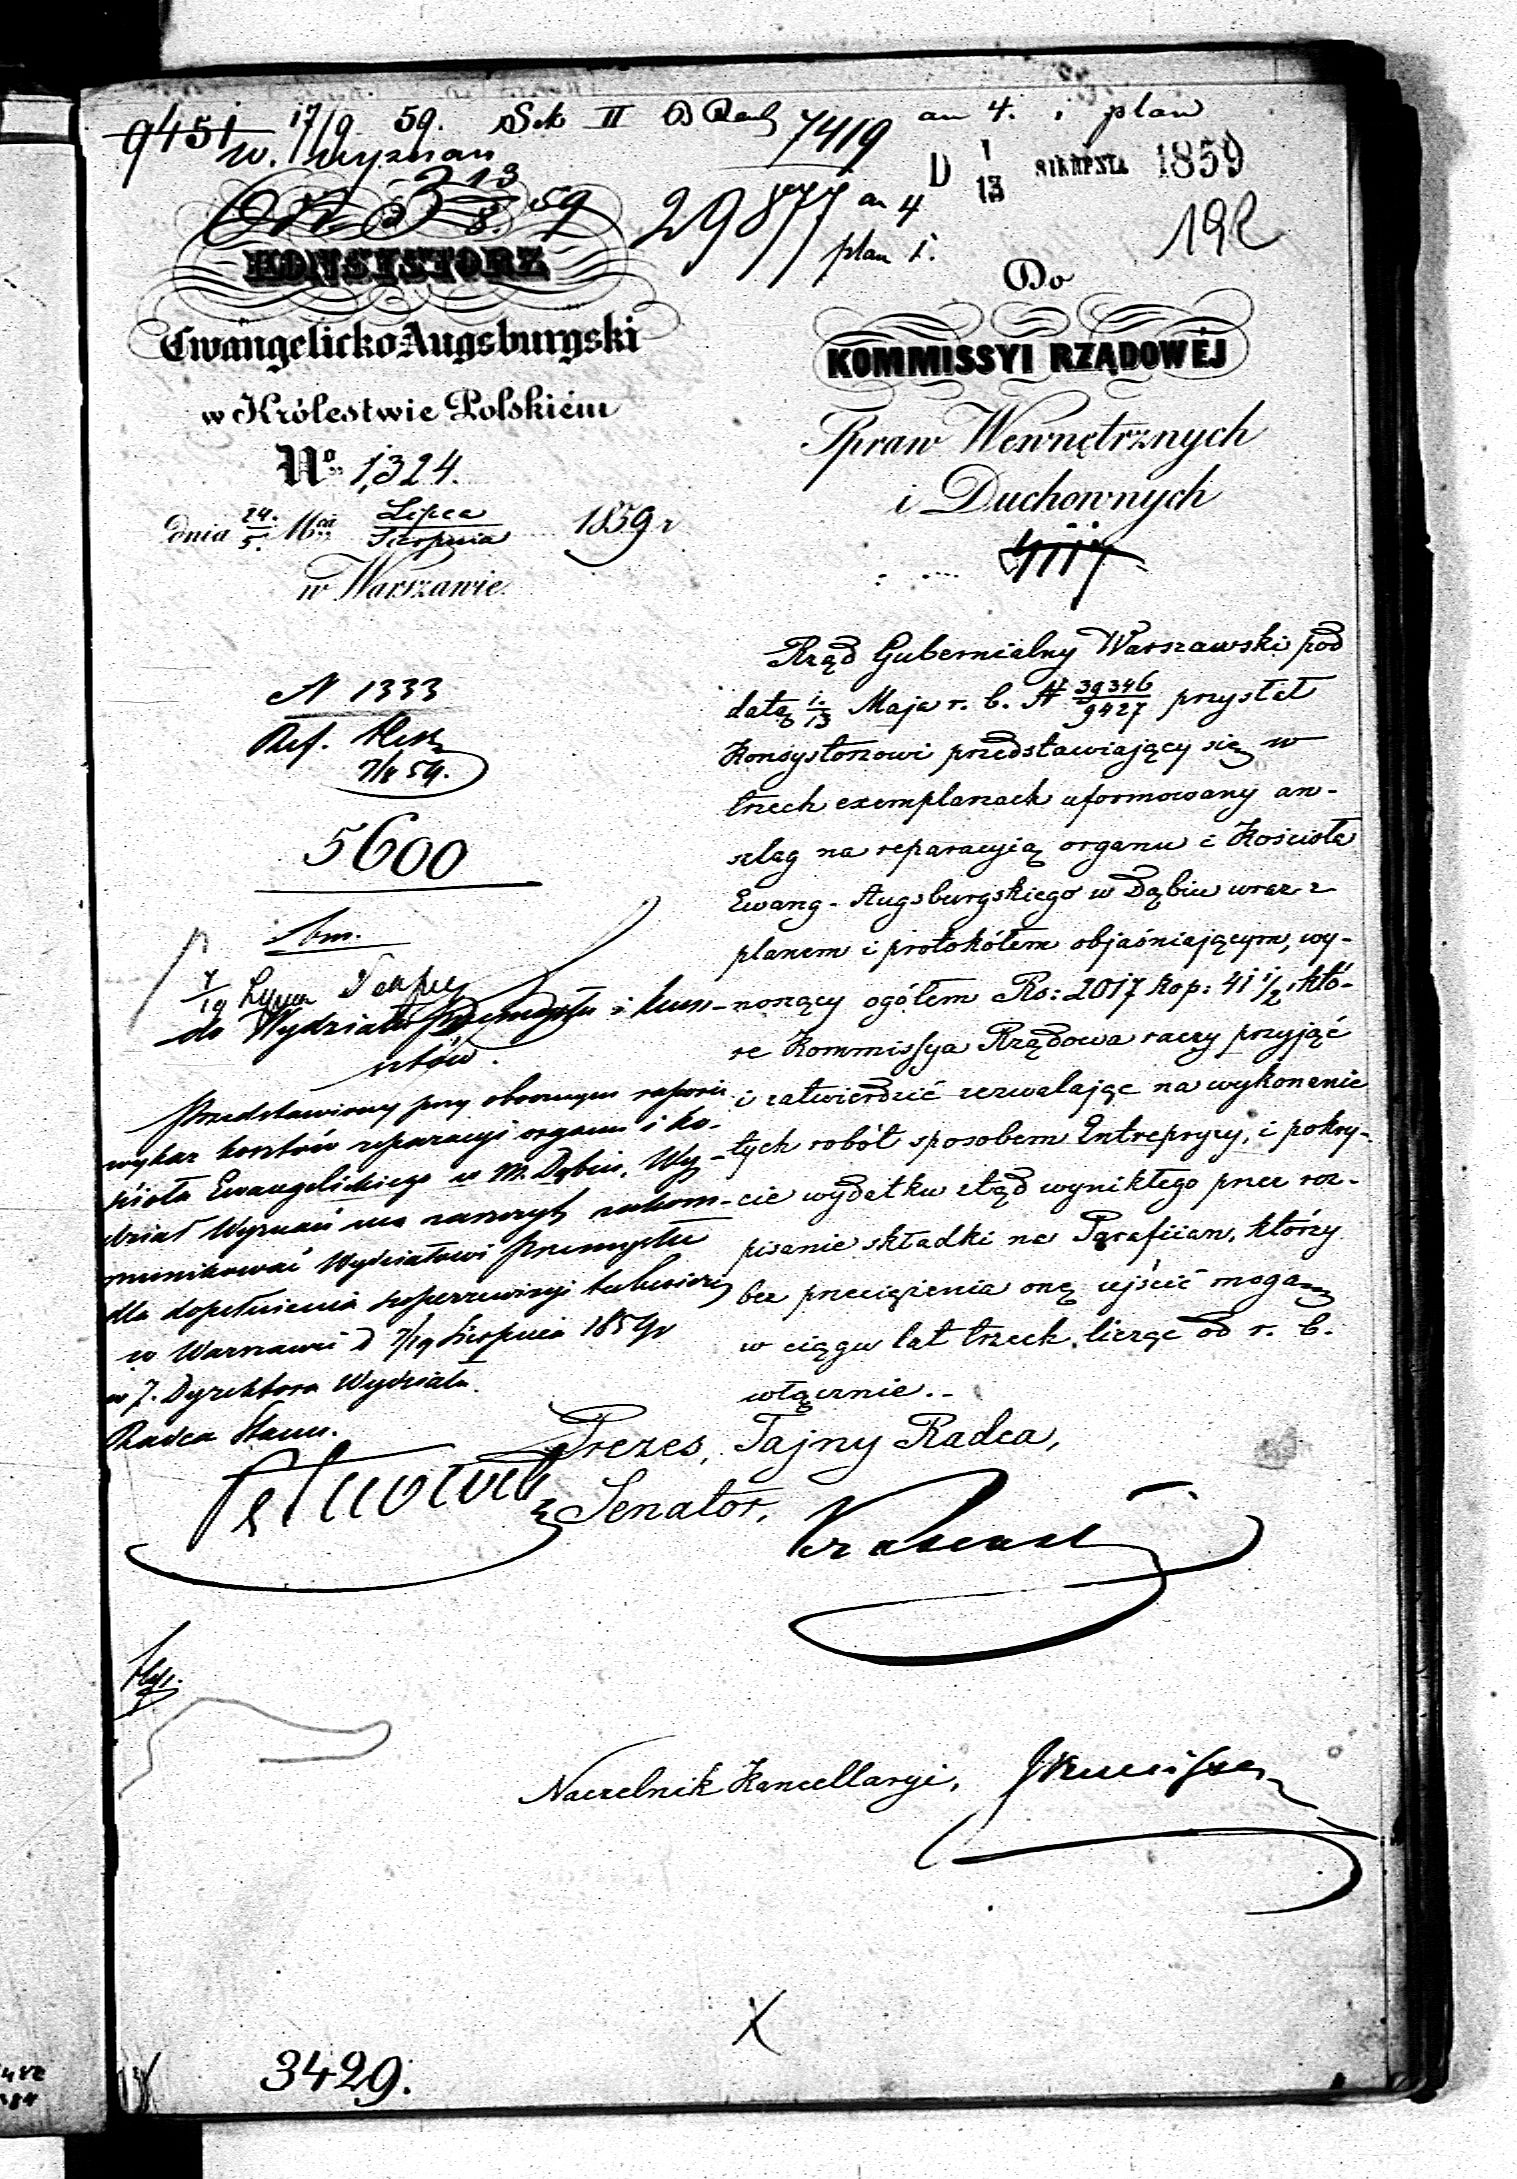 9451 17/9 59. Sek II
w. wyznań
7419 an 4. i plan
29877 an 4
plan 1.
D 1/13 SIERPNIA 1859
192
KONSYSTORZ
Ewangelicko Augsburgski
w Królestwie Polskiém
No 1,324.
dnia 24./5. Lipca/Sierpnia 1859 r
w Warszawie.
Do
KOMMISSYI RZĄDOWÉJ
Spraw Wewnętrznych
i Duchownych
N 1333
Ref.
7/8 59.
5600
7/19
do Wydziału Przemysłu i kun-
sztów.
Przedstawiony przy obocznym raporcie
wykaz kosztów reparacyi organu i ko-
ścioła Ewangelickiego w M. Dąbiu, Wy-
dział Wyznań ma zaszczyt zakom-
munikować Wydziałowi Przemysłu
dla dopełnienia superrewizyi
w Warszawie d 7/19 Sierpnia 1859 r
w z. Dyrektora Wydziału
Radca Stanu.
Rząd Gubernialny Warszawski pod
datą 1./13 Maja r. b. N 39346/9427 przysłał
Konsystorzowi przedstawiający się w
trzech exemplarzach uformowany an-
szlag na reparacyią organu i Kościoła
Ewang-Augsburgskiego w Dąbiu wraz z
planem i protokółem objaśniającym, wy-
noszący ogółem Rs: 2017 kop: 41 1/2, któ-
re Kommissya Rządowa raczy przyjąć
i zatwierdzić zezwalając na wykonanie
tych robót sposobem Entrepryzy, i pokry-
cie wydatku ztąd wynikłego przez roz-
pisanie składki na Parafiian, którzy
bez przeciążenia onę ujścić mogą
w ciągu lat trzech, licząc od r. b.
włącznie.-
Prezes, Tajny Radca,
Senator,
Naczelnik Kancellaryi,
3429.